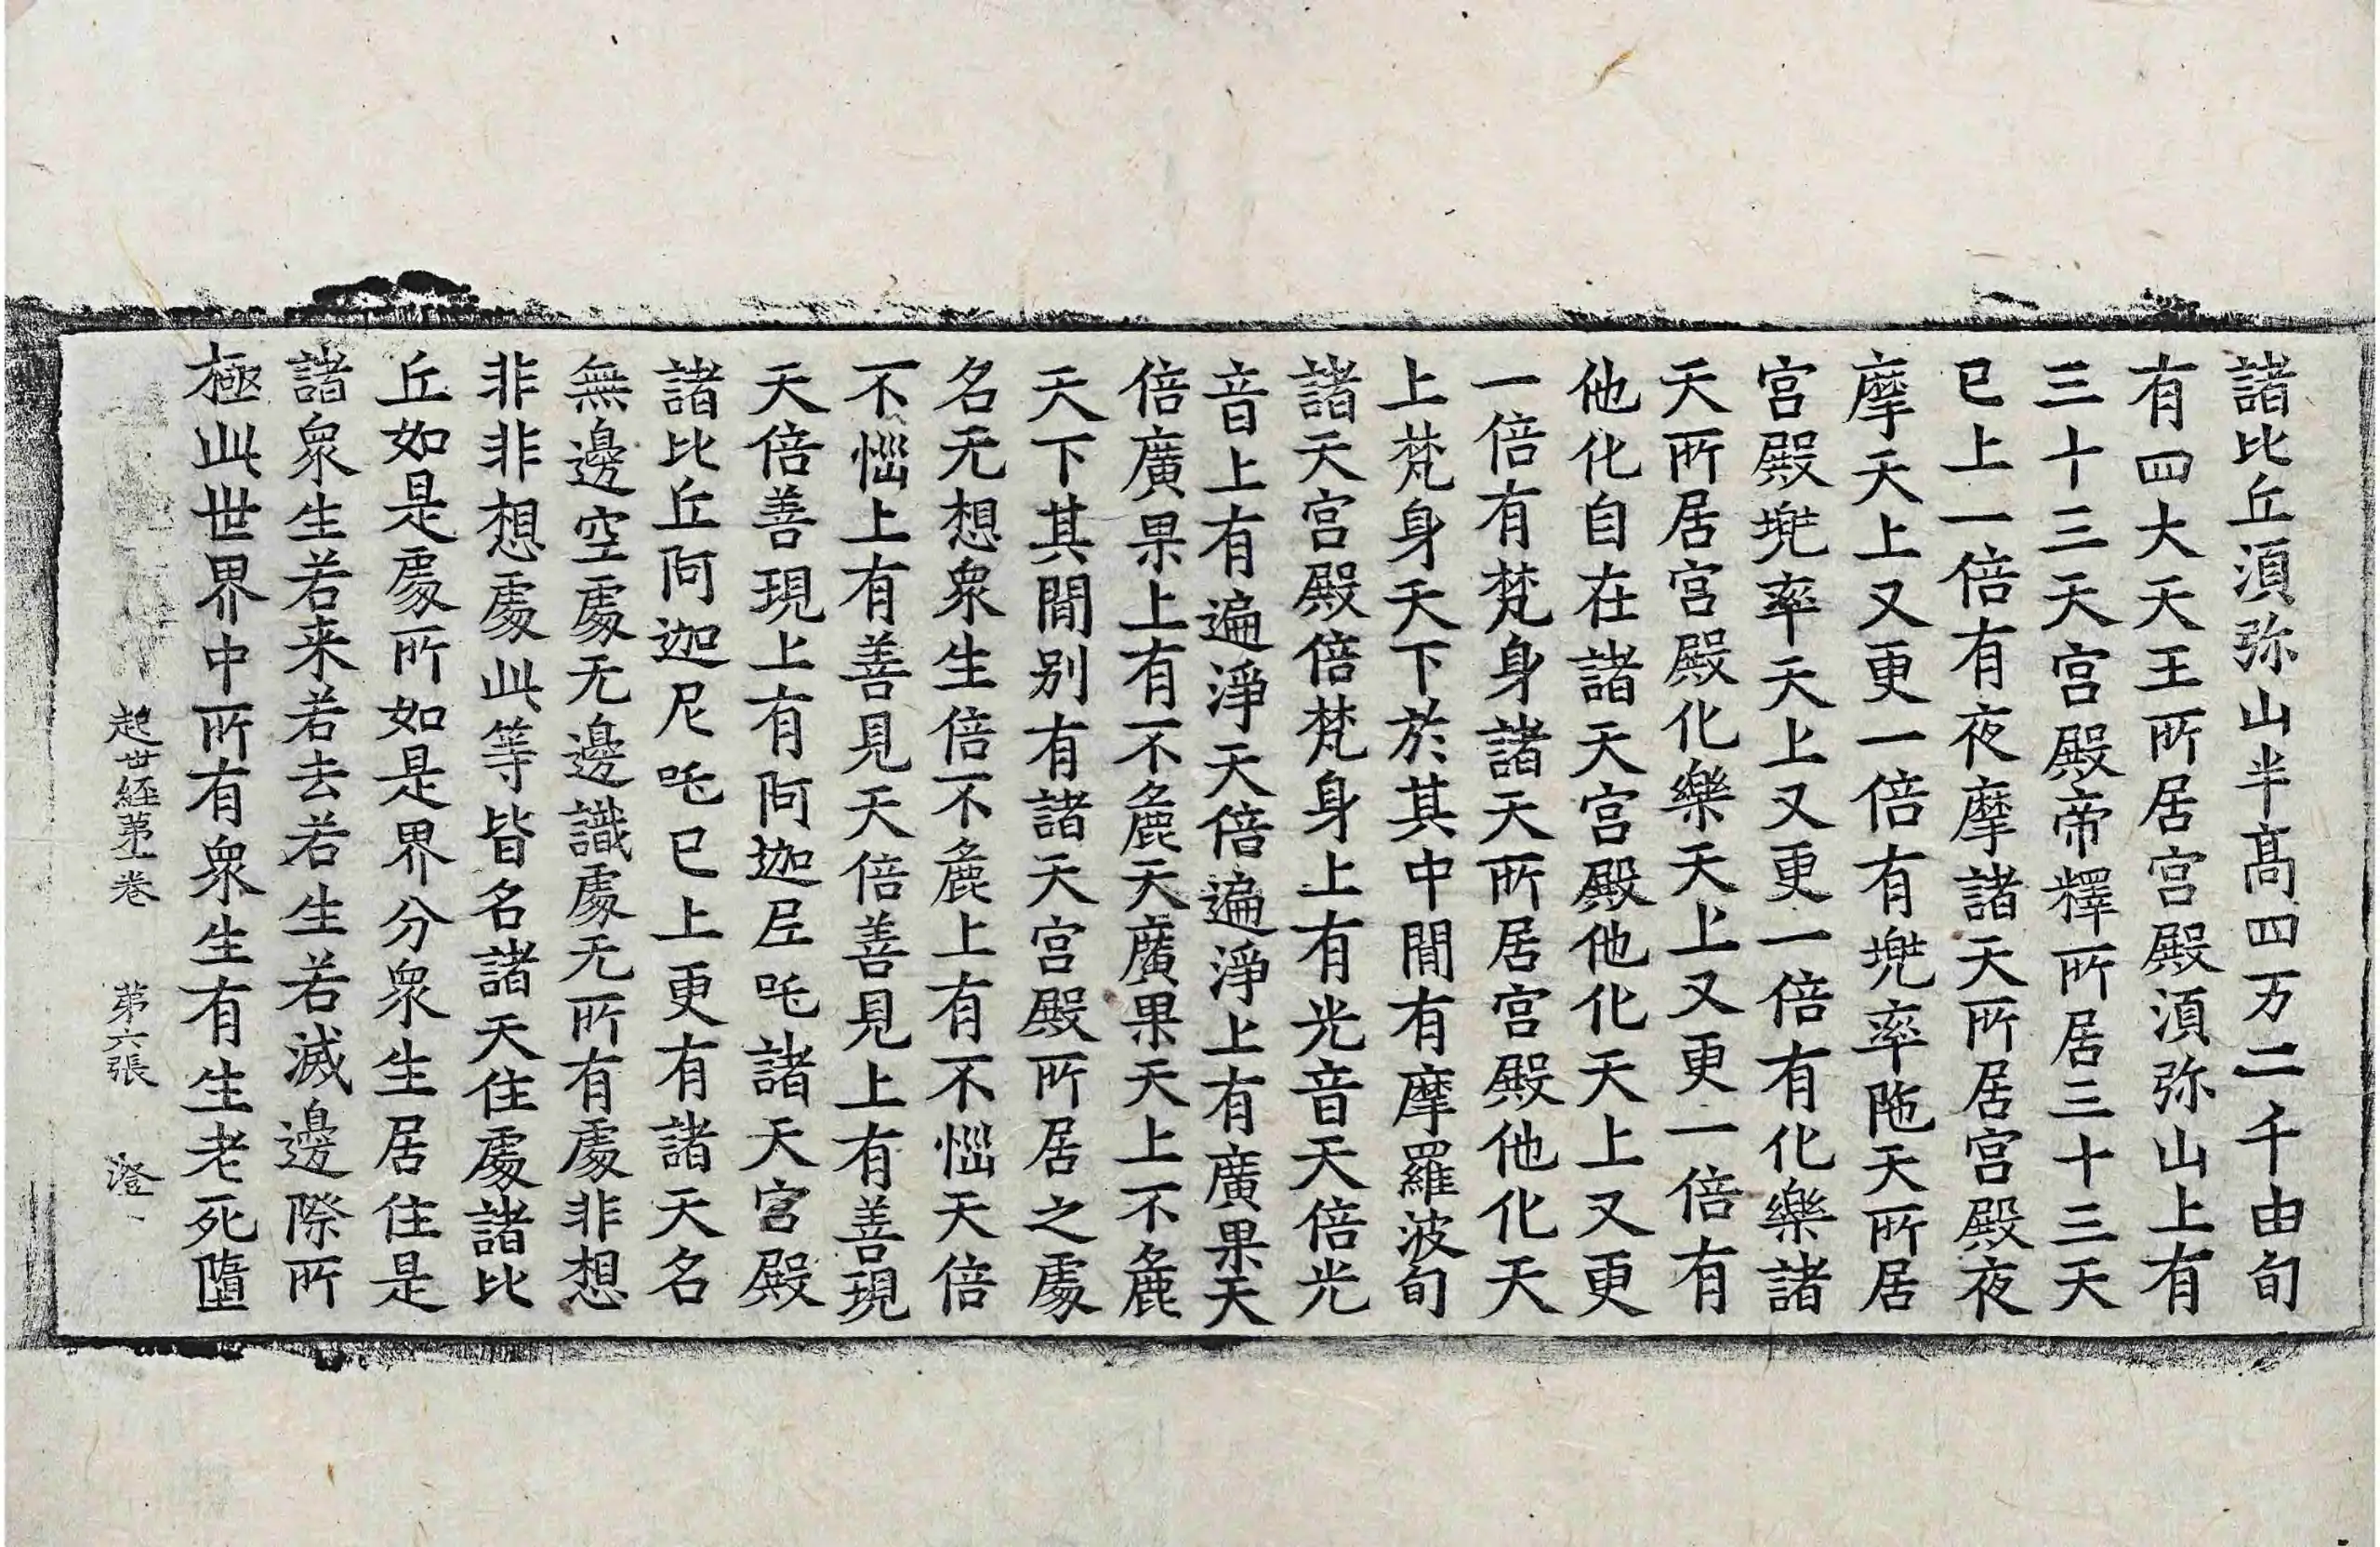 諸比丘湏弥山半髙四万二千由旬
有四大天王所居宫殿湏弥山上有
三十三天宫殿帝釋所居三十三天
已上一倍有夜摩諸天所居宫殿夜
摩天上又更一倍有兠率陁天所居
宫殿兠率天上又更一倍有化樂諸
天所居宫殿化樂天上又更一倍有
他化自在諸天宫殿他化天上又更
一倍有梵身諸天所居宫殿他化天
上梵身天下於其中間有摩羅波旬
諸天宫殿倍梵身上有光音天倍光
音上有遍淨天倍遍淨上有廣果天
倍廣果上有不麁天廣果天上不麁
天下其間别有諸天宫殿所居之處
名无想衆生倍不麁上有不惱天倍
不惱上有善見天倍善見上有善現
天倍善現上有阿迦尼吒諸天宫殿
諸比丘阿迦尼吒已上更有諸天名
無邊空處无邊識處无所有處非想
非非想處此等皆名諸天住處諸比
丘如是處所如是界分衆生居住是
諸衆生若来若去若生若滅邊際所
極此世界中所有衆生有生老死墮
起世經第一卷　第六張　澄